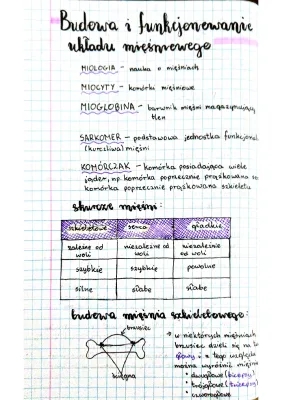 Budowa i funkcjonowanie
układu mięśniowego
MIOLOGIA - nauka o mięśniach
MIOCYTY - komórki mięśniowe
MIOGLOBINA - barwnik mięśni magazynujący
tlen
SARKOMER - podstawowa jednostka funkcjonal
(kurczliwa) mięśni
KOMÓRCZAK - komórka posiadająca wiele
jąder, np. komórka poprzecznie prążkowana
komórka poprzecznie prążkowana szkieletu
skurcze mięśni:
szkieletowe serca gładkie
zależne od woli niezależne od woli niezależnie od woli
szybkie szybkie powolne
silne słabe słabe
budowa mięśnia szkieletowego:
brzusiec
ścięgna
→ w niektórych mięśniach
brzusiec dzieli się na
głowy i z tego względu
można wyróżnić mięśnie
• dwugłowe (bicepsy)
• trójgłowe (tricepsy)
• czworogłowe